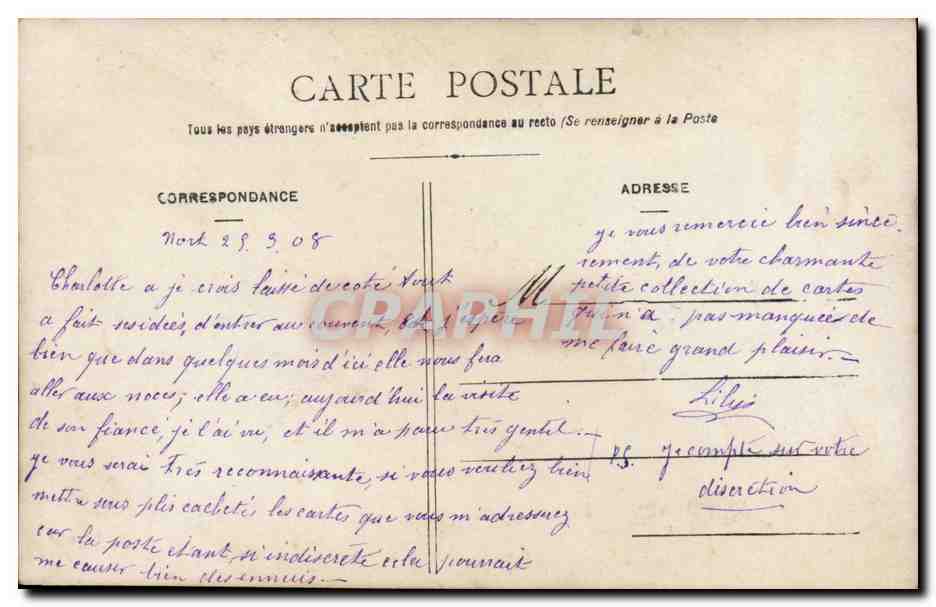 CARTE POSTALE
Tous les pays étrangers n'acceptent pas la correspondance au recto (Se renseigner à la Poste
CORRESPONDANCE
Nort 25 9 08
Charlotte a je crois laissé de coté tout
a fait ses ideés, d'entrer au couvent, et j'espère
bien que dans quelques mois d'ici elle nous fera
aller aux noces; elle a eu, aujourd'hui la visite
de son fiancé, je l'ai vu, et il m'a paru très gentil.
je vous serai très reconnaissante, si vous vouliez bien
mettre sous plis cachetés les cartes que vous m'adresserez
car la poste etant si indiscrete cela pourrait
me causer bien des ennuis.—
ADRESSE
je vous remercie bien sincè-
rement, de votre charmante
petite collection de cartes
qui n'a pas manquée de
me faire grand plaisir.—
P.S. Je compte sur votre
discrétion
CPARHIL